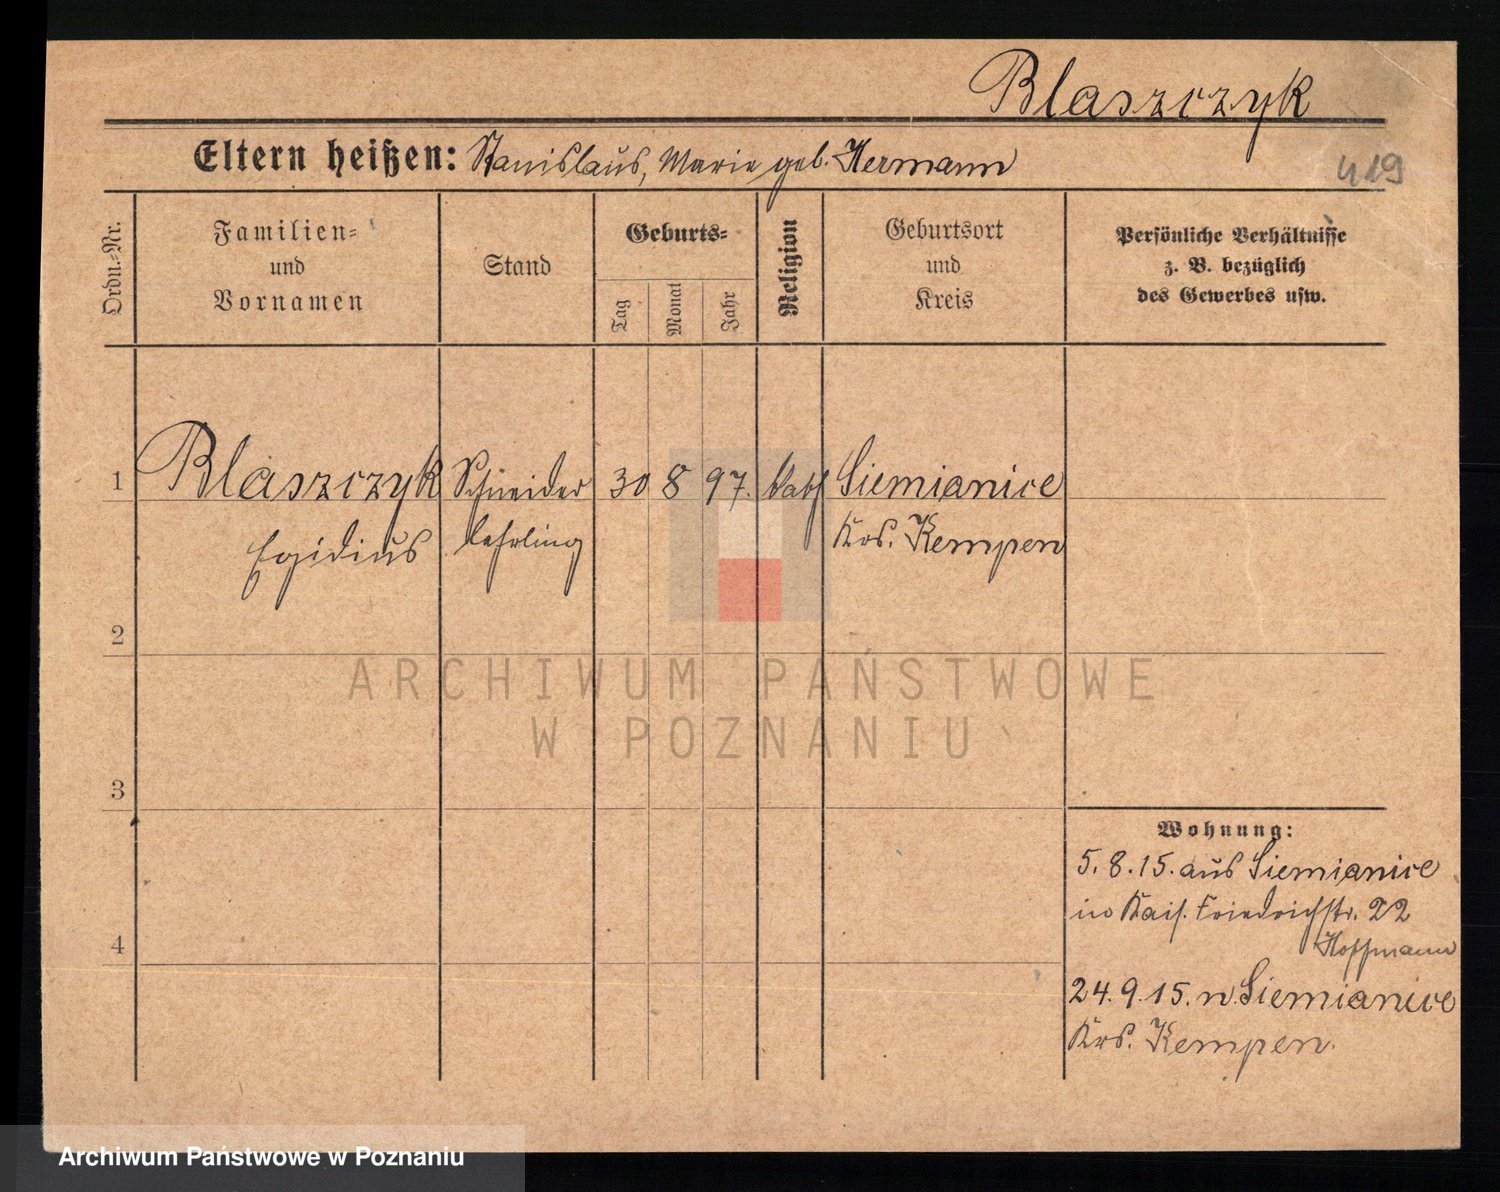 Blaszczyk
Eltern heißen: Stanislaus, Marie geb. Hermann
419
Ordn.-Nr.
Familien-
und
Vornamen
Stand
Geburts-
Tag
Monat
Jahr
Religion
Geburtsort
und
Kreis
Persönliche Verhältnisse
z. B. bezüglich
des Gewerbes usw.
1 Blaszczyk Schneider 30 8 97. kath Siemianice
Egidius lehrling Krs. Kempen
2
ARCHIWUM PAŃSTWOWE
W POZNANIU
3
Wohnung:
5. 8. 15. aus Siemianice
in Kais. Friedrichstr. 22
Hoffmann
4
24. 9. 15. n. Siemianice
Krs. Kempen.
Archiwum Państwowe w Poznaniu